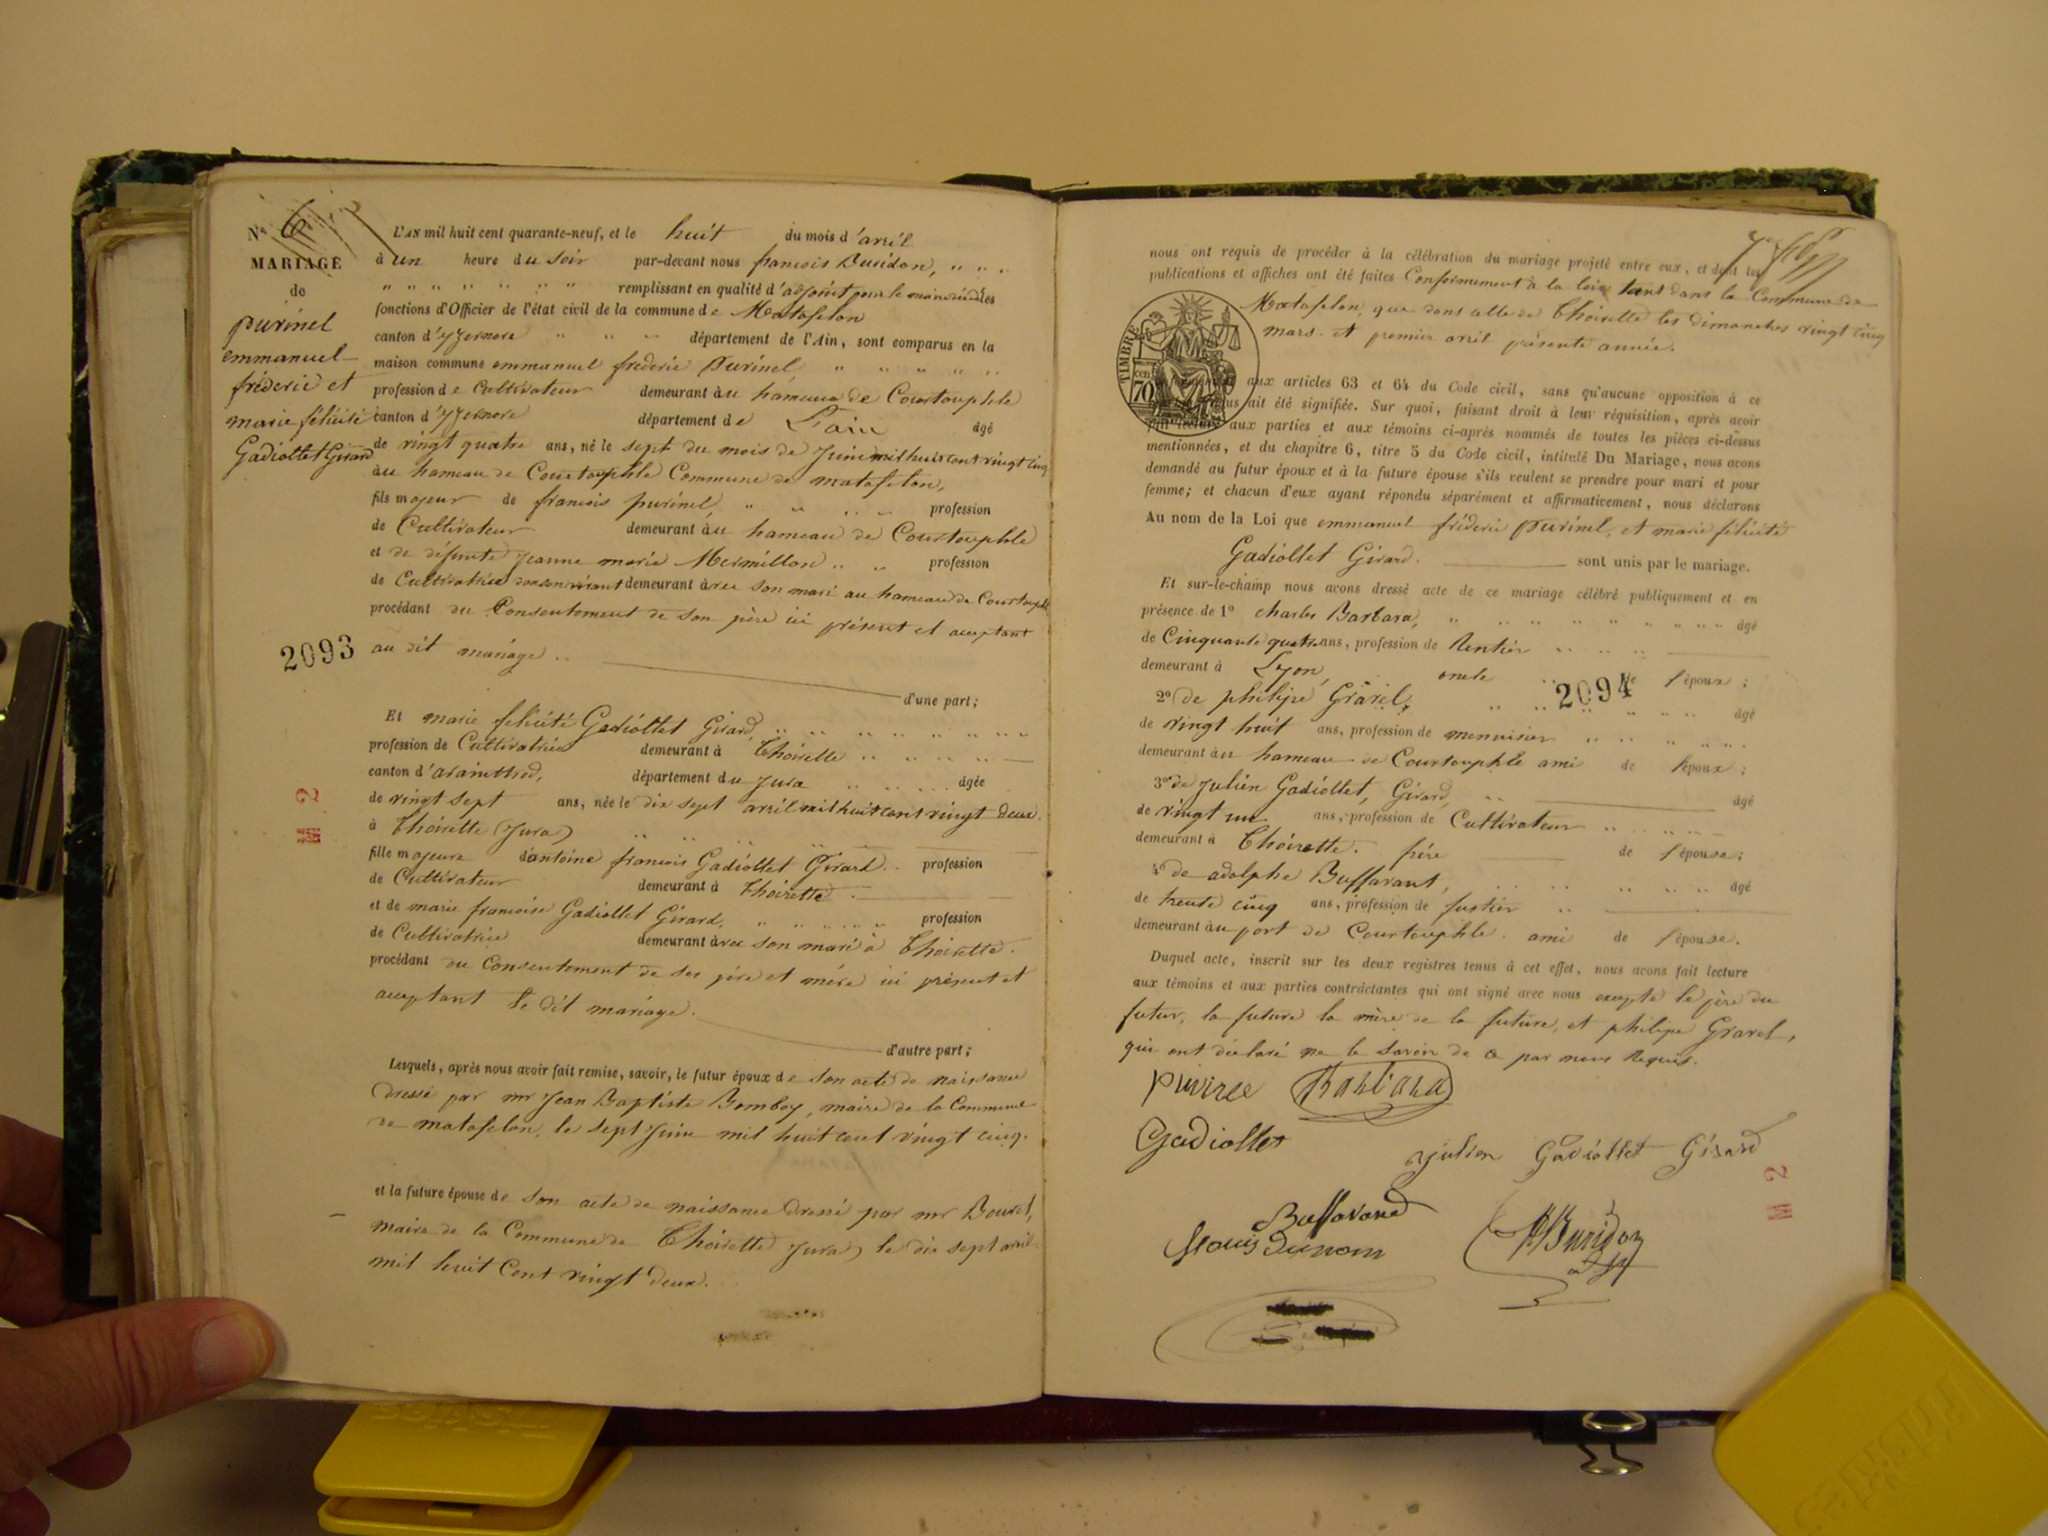 No 6
MARIAGE
de
purinel
emmanuel
fréderic et
marie félicité
Gadiollet Girard
L'AN mil huit cent quarante-neuf, et le huit du mois d'avril
à un heure du soir par-devant nous francois Buridon,
remplissant en qualité d'adjoint pour le maire les
fonctions d'Officier de l'état civil de la commune de Matafelon
canton d'yzernore département de l'Ain, sont comparus en la
maison commune emmanuel fréderic purinel
profession de Cultivateur demeurant au hameau de Courtouphle
canton d'yzernore département de L'ain âgé
de vingt quatre ans, né le sept du mois de Juin mil huit cent vingt cinq
au hameau de Courtouphle Commune de matafelon,
fils majeur de francois purinel, profession
de Cultivateur demeurant au hameau de Courtouphle
et de défunte jeanne marie Mermillon profession
de Cultivatrice de son vivant demeurant avec son mari au hameau de Courtouphle
procédant du Consentement de son père ici présent et acceptant
2093
au dit mariage
d'une part;
Et marie félicité Gadiollet Girard,
profession de Cultivatrice demeurant à Thoirette
canton d'arainthod, département du Jura âgée
de vingt sept ans, née le dix sept avril mil huit cent vingt deux
à Thoirette (Jura)
fille majeure d'antoine francois Gadiollet Girard profession
de Cultivateur demeurant à Thoirette
et de marie francoise Gadiollet Girard, profession
de Cultivatrice demeurant avec son mari à Thoirette.
procédant du Consentement de ses père et mère ici présent et
acceptant le dit mariage.
d'autre part;
M 2
Lesquels, après nous avoir fait remise, savoir, le futur époux de son acte de naissance
dressé par mr Jean Baptiste Bomboy, maire de la Commune
de matafelon, le sept Juin mil huit cent vingt cinq.
et la future épouse de son acte de naissance dressé par mr Bouret,
maire de la Commune de Thoirette Jura) le dix sept avril
mil huit Cent vingt deux.
nous ont requis de procéder à la célébration du mariage projeté entre eux, et dont les
publications et affiches ont été faites Conformement à la loi tant dans la Commune de
Matafelon, que dans celle de Thoirette les dimanches vingt cinq
mars et premier avril présente année.
TIMBRE
70
aux articles 63 et 64 du Code civil, sans qu'aucune opposition à ce
ait été signifiée. Sur quoi, faisant droit à leur réquisition, après avoir
aux parties et aux témoins ci-après nommés de toutes les pièces ci-dessus
mentionnées, et du chapitre 6, titre 5 du Code civil, intitulé Du Mariage, nous avons
demandé au futur époux et à la future épouse s'ils veulent se prendre pour mari et pour
femme; et chacun d'eux ayant répondu séparément et affirmativement, nous déclarons
Au nom de la Loi que emmanuel fréderic purinel, et marie félicité
Gadiollet Girard. sont unis par le mariage.
Et sur-le-champ nous avons dressé acte de ce mariage célébré publiquement et en
présence de 1o charles Barbara, âgé
de Cinquante quatre ans, profession de Rentier
demeurant à Lyon, oncle de l'époux;
2o de philipe Gravel, 2094 âgé
de vingt huit ans, profession de menuisier
demeurant au hameau de Courtouphle ami de l'époux;
3o de Julien Gadiollet, Girard, âgé
de vingt un ans, profession de Cultivateur
demeurant à Thoirette. frère de l'épouse;
4o de adolphe Buffavant, âgé
de trente cinq ans, profession de fustier
demeurant au port de Courtouphle. ami de l'épouse.
Duquel acte, inscrit sur les deux registres tenus à cet effet, nous avons fait lecture
aux témoins et aux parties contractantes qui ont signé avec nous excepté le père du
futur, la future la mère de la future, et philipe Gravel,
qui ont déclaré ne le savoir de ce par nous Requis.
Barbara
Gadiollet
Julien Gadiollet Girard
M 2
Buffavand
Buridon